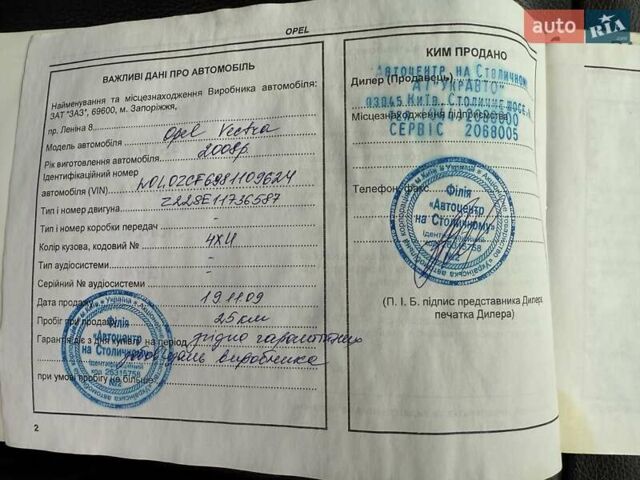 OPEL
auto RIA.com
ВАЖЛИВІ ДАНІ ПРО АВТОМОБІЛЬ
Найменування та місцезнаходження Виробника автомобіля:
ЗАТ "ЗАЗ", 69600, м. Запоріжжя,
пр. Леніна 8
Модель автомобіля Opel Vectra
Рік виготовлення автомобіля 2008р.
Ідентифікаційний номер
автомобіля (VIN) W0L0ZCF6981109624
Тип і номер двигуна Z22SE11736587
Тип і номер коробки передач -
Колір кузова, кодовий № 4ХU
Тип аудіосистеми -
Серійний № аудіосистеми -
Дата продажу 191109
Пробіг при продажу 25км
Гарантія діє з дня купівлі на період згідно гарантійних
виробника
при умові пробігу не більше
Філія
«Автоцентр
на Столичному»
Ідентифікаційний
код 25315758
№2
2
КИМ ПРОДАНО
Автоцентр на Столичном
Дилер (Продавець)
АТ "УКРАВТО"
03045 Київ, Столичне шосе
Місцезнаходження підприємства
СЕРВІС 2068005
Телефон, факс
Філія
«Автоцентр
на Столичному»
(П. І. Б. підпис представника Дилера
печатка Дилера)